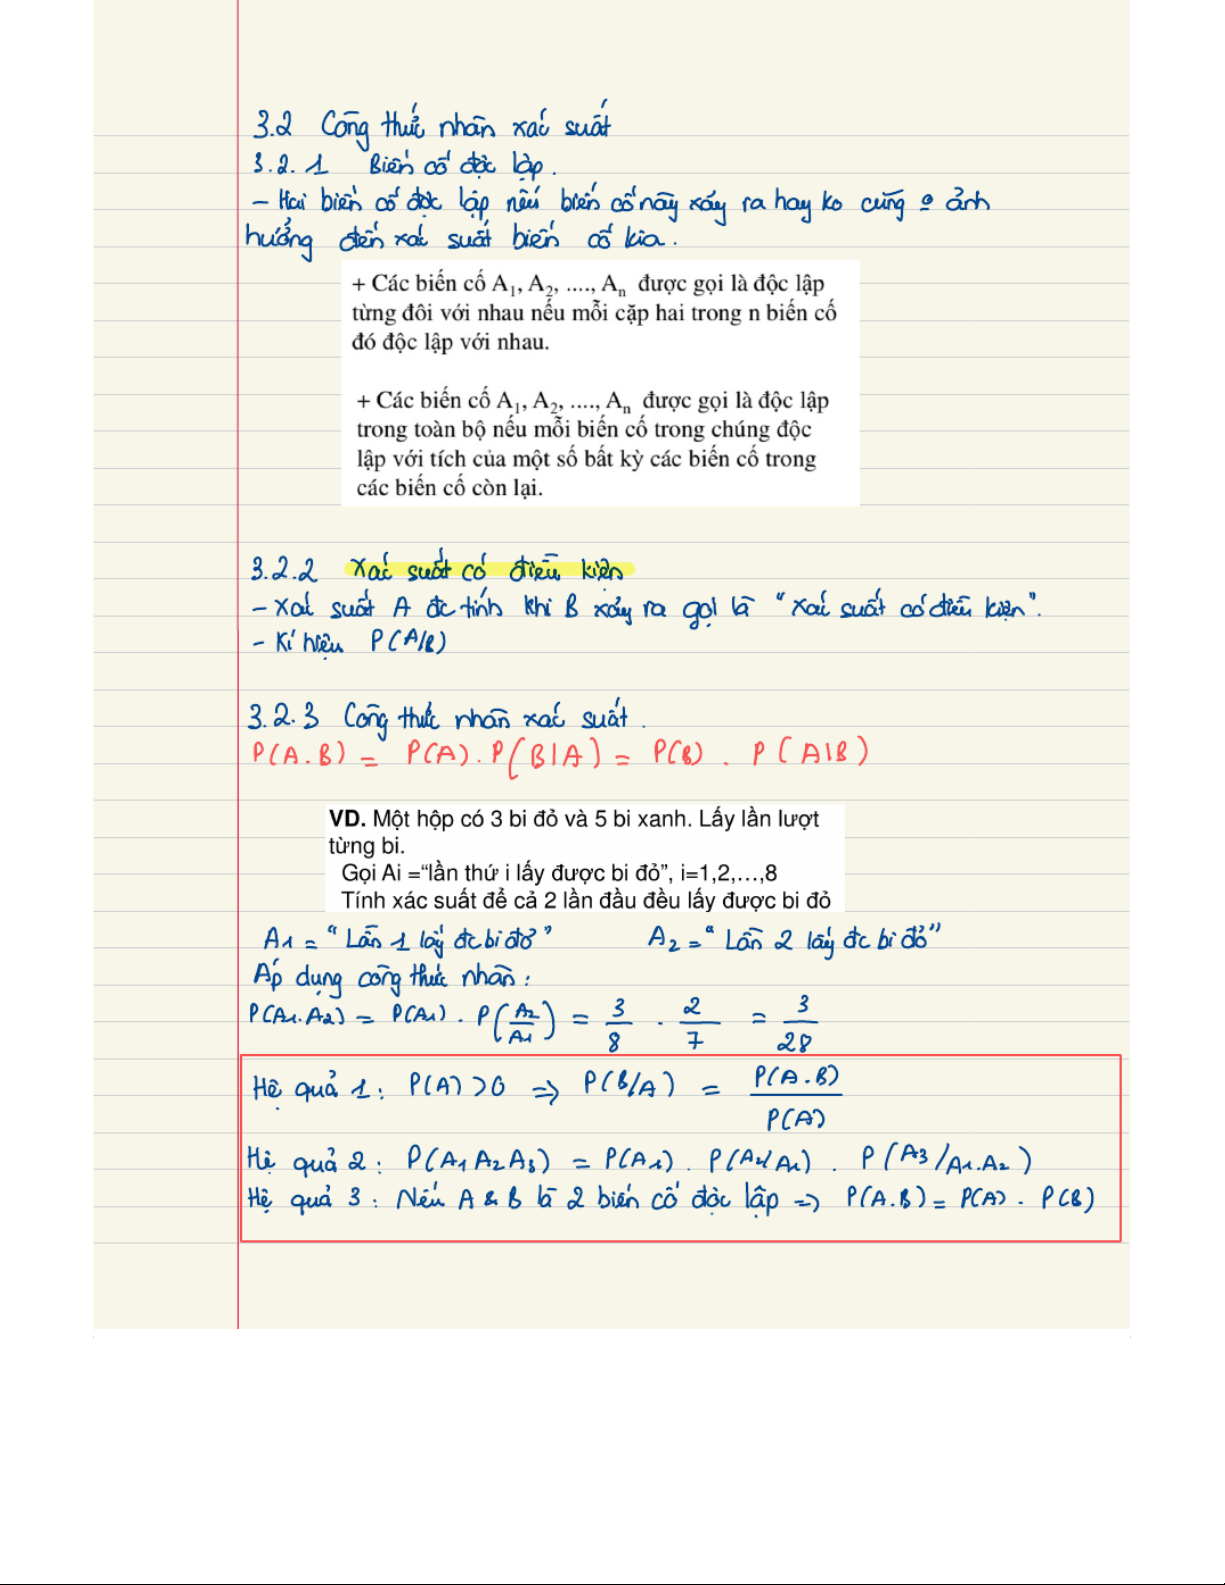 3.2 Công thức nhân xác suất
3.2.1 Biến cố độc lập.
- Hai biến cố độc lập nếu biến cố này xảy ra hay ko cũng o ảnh
hưởng đến xác suất biến cố kia.
+ Các biến cố A₁, A₂, ...., Aₙ được gọi là độc lập
từng đôi với nhau nếu mỗi cặp hai trong n biến cố
đó độc lập với nhau.
+ Các biến cố A₁, A₂, ...., Aₙ được gọi là độc lập
trong toàn bộ nếu mỗi biến cố trong chúng độc
lập với tích của một số bất kỳ các biến cố trong
các biến cố còn lại.
3.2.2 Xác suất có điều kiện
- Xác suất A đc tính khi B xảy ra gọi là "xác suất có điều kiện".
- Kí hiệu P(A/B)
3.2.3 Công thức nhân xác suất.
P(A.B) = P(A).P(B|A) = P(B) . P(A|B)
VD. Một hộp có 3 bi đỏ và 5 bi xanh. Lấy lần lượt
từng bi.
Gọi Ai =“lần thứ i lấy được bi đỏ”, i=1,2,…,8
Tính xác suất để cả 2 lần đầu đều lấy được bi đỏ
A₁ = "Lần 1 lấy đc bi đỏ" A₂ = "Lần 2 lấy đc bi đỏ"
Áp dụng công thức nhân:
P(A₁.A₂) = P(A₁) . P(A₂/A₁) = 3/8 . 2/7 = 3/28
Hệ quả 1: P(A) >0 => P(B/A) = P(A.B)/P(A)
Hệ quả 2: P(A₁A₂A₃) = P(A₁) . P(A₂/A₁) . P(A₃/A₁.A₂)
Hệ quả 3: Nếu A & B là 2 biến cố độc lập => P(A.B) = P(A) . P(B)